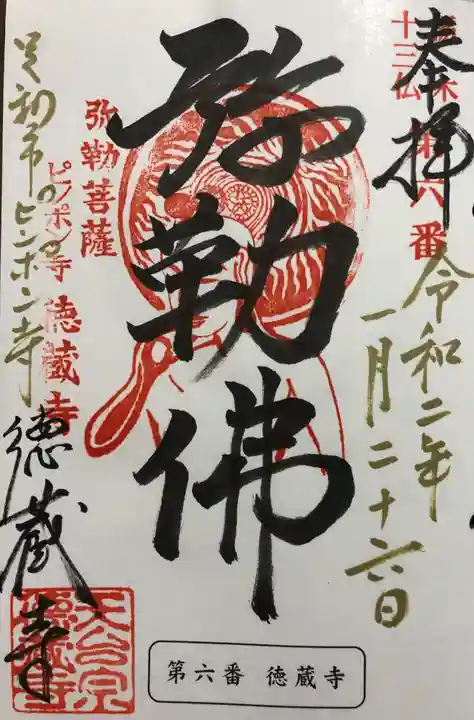 奉拝
十三仏
第六番
令和二年
一月二十六日
弥勒佛
弥勒菩薩
ピンポン寺 徳蔵寺
足利市のピンポン寺
徳蔵寺
天台宗
徳蔵寺
第六番 徳蔵寺